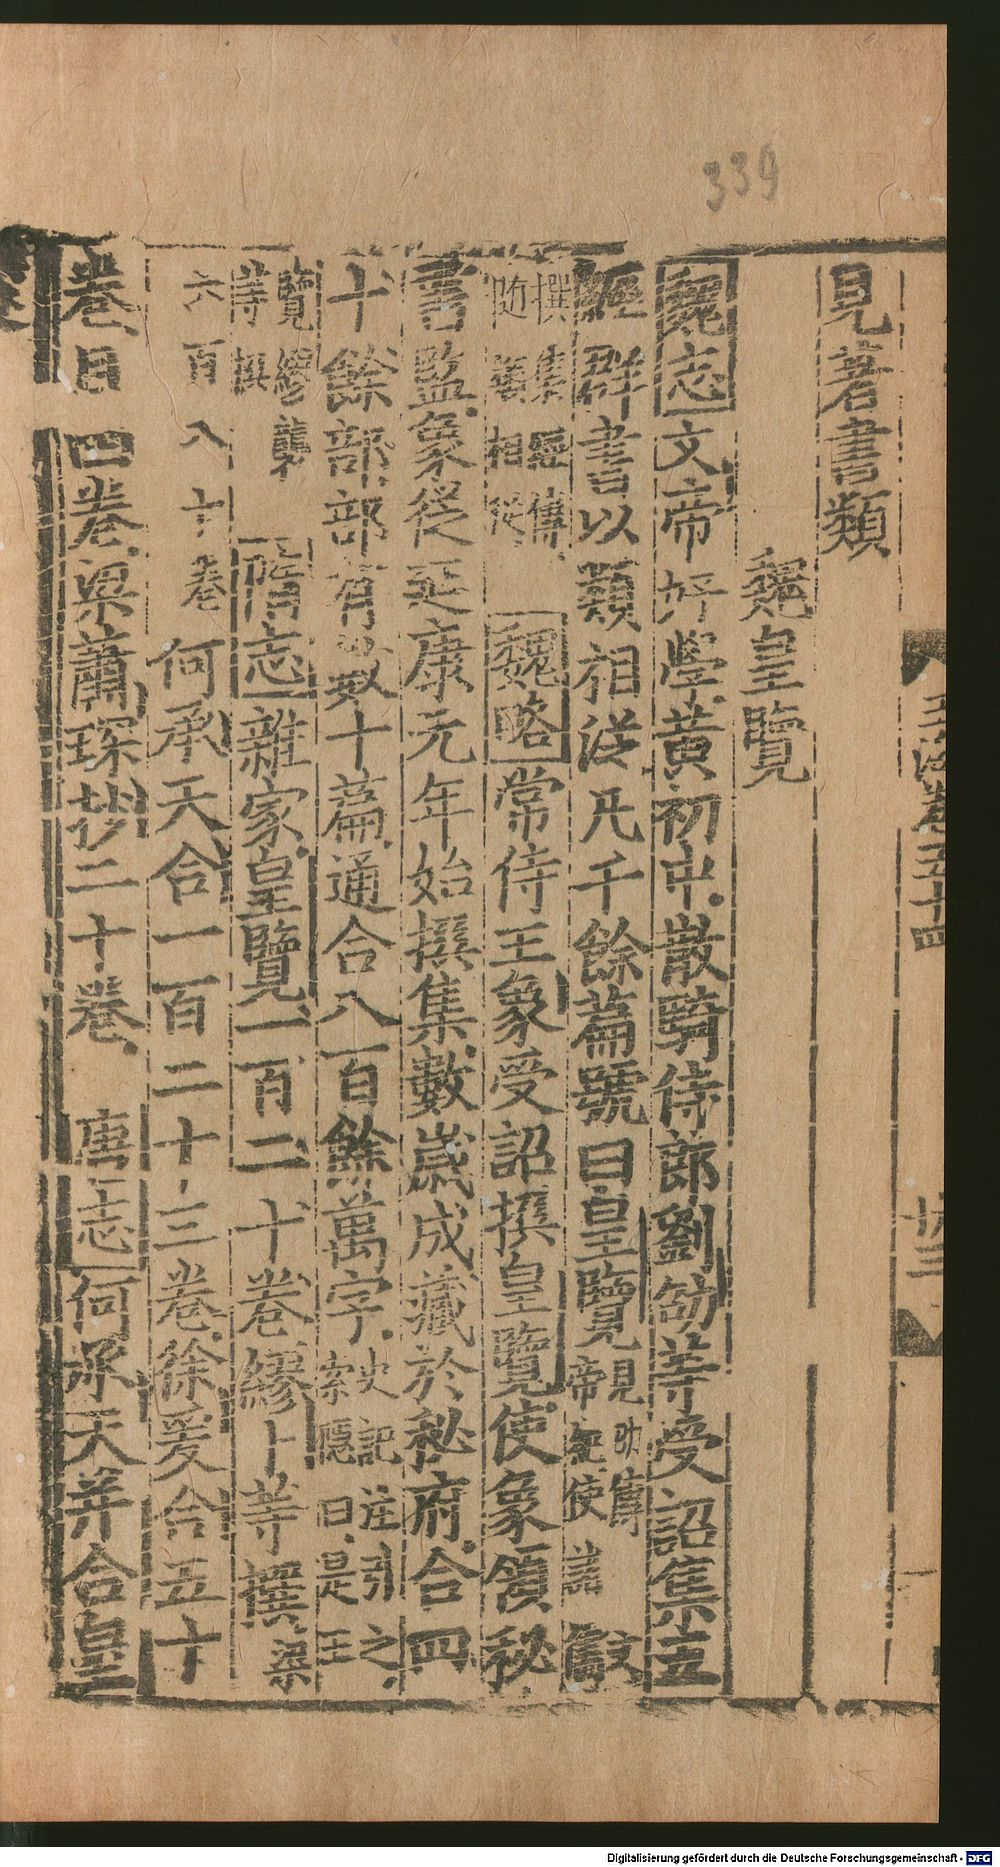 339
玉海卷五十四
見著書類
魏皇覽
魏志文帝好學黃初中散騎侍郎劉劭等受詔集五
經群書以類相从凡千餘篇號曰皇覽見劭傳文帝紀使諸儒
撰集經傳随類相從魏略常侍王象受詔撰皇覽使象領秘
書監象從延康元年始撰集數歲成藏於秘府合四
十餘部部有數十篇通合八百餘萬字史記注引之索隱曰是王
覽繆襲等撰隋志雜家皇覽一百二十卷繆卜等撰梁
六百八十卷何承天合一百二十三卷徐爰合五十
卷目四卷梁蕭琛抄二十卷唐志何承天并合皇
Digitalisierung gefördert durch die Deutsche Forschungsgemeinschaft - DFG